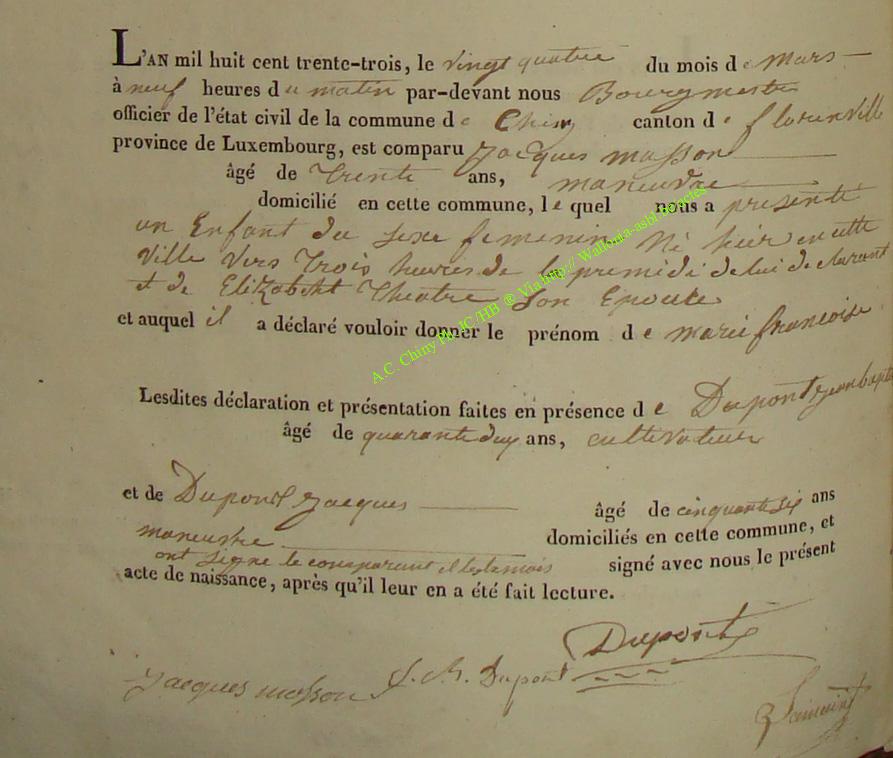 L'AN mil huit cent trente-trois, le vingt quatre du mois de mars
à neuf heures du matin par-devant nous Bourgmestre
officier de l'état civil de la commune de Chiny canton de florenville
province de Luxembourg, est comparu Jacques masson
âgé de Trente ans, maneuvre
domicilié en cette commune, lequel nous a presenté
un Enfant du sexe feminin Né hier en cette
ville vers Trois heures de la premidi de lui declarant
et de Elizabeht Theatre son Epouse
et auquel il a déclaré vouloir donner le prénom de marie francoise
Lesdites déclaration et présentation faites en présence de Dupont jean bapte
âgé de quarante deux ans, cultivateur
et de Dupont Jacques âgé de cinquante six ans
maneuvre domiciliés en cette commune, et
ont signe le comparant et les temois signé avec nous le présent
acte de naissance, après qu'il leur en a été fait lecture.
Dupont
Jacques masson J. B. Dupont
A.C. Chiny Ph JC/HB ® Via http:// Wallonia-asbl.be/actes